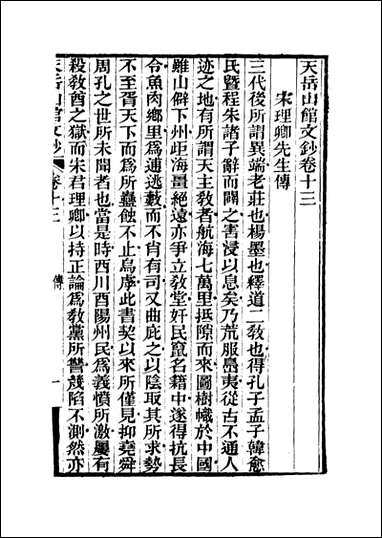 天岳山館文鈔卷十三
宋理卿先生傳
三代後所謂異端老莊也楊墨也釋道二教也得孔子孟子韓愈
氏暨程朱諸子辭而闢之害浸以息矣乃荒服島夷從古不通人
迹之地有所謂天主教者航海七萬里抵隙而來圖樹幟於中國
雖山僻下州距海畺絕遠亦爭立教堂奸民竄名籍中遂得抗長
令魚肉鄉里為逋逃藪而不肖有司又曲庇之以陰取其所求勢
不至胥天下而為所蠱蝕不止烏虖此書契以來所僅見抑堯舜
周孔之世所未聞者也當是時西川酉陽州民為義憤所激屢有
殺教酋之獄而宋君理卿以持正論為教黨所讐蔑陷不測然亦
天岳山館文鈔
卷十三
傳
一